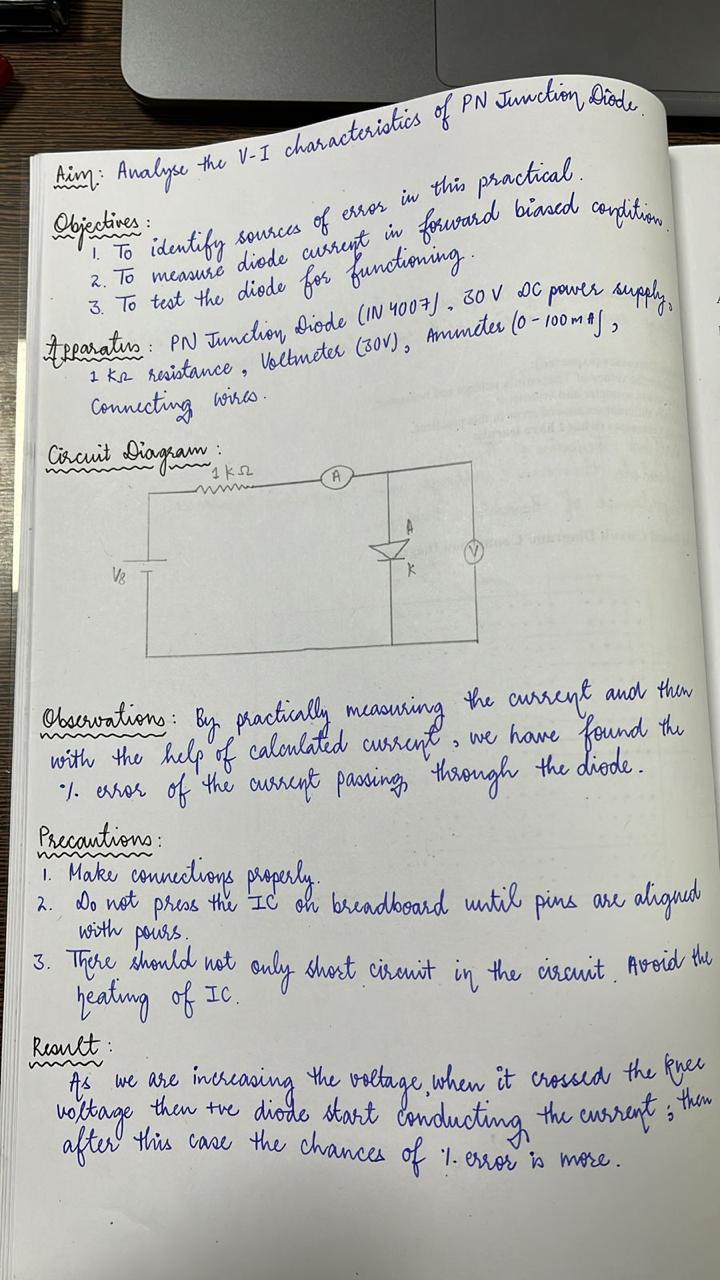 Aim: Analyse the V-I characteristics of PN Junction Diode.
Objectives:
1. To identify sources of error in this practical.
2. To measure diode current in forward biased condition.
3. To test the diode for functioning.
Apparatus: PN Junction Diode (IN 4007), 30 V DC power supply,
1 KΩ resistance, Voltmeter (30V), Ammeter (0-100mA),
Connecting wires.
Circuit Diagram:
1 KΩ
A
A
V
K
VB
Observations: By practically measuring the current and then
with the help of calculated current, we have found the
% error of the current passing through the diode.
Precautions:
1. Make connections properly.
2. Do not press the IC on breadboard until pins are aligned
with pours.
3. There should not only short circuit in the circuit. Avoid the
heating of IC.
Result:
As we are increasing the voltage, when it crossed the knee
voltage then +ve diode start conducting the current; then
after this case the chances of % error is more.